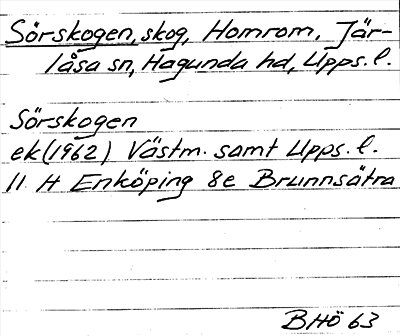 Sörskogen, skog, Homrom, Jär-
låsa sn, Hagunda hd, Upps. l.
Sörskogen
ek (1962) Västm. samt Upps. l.
11 H Enköping 8e Brunnsätra
BHö 63